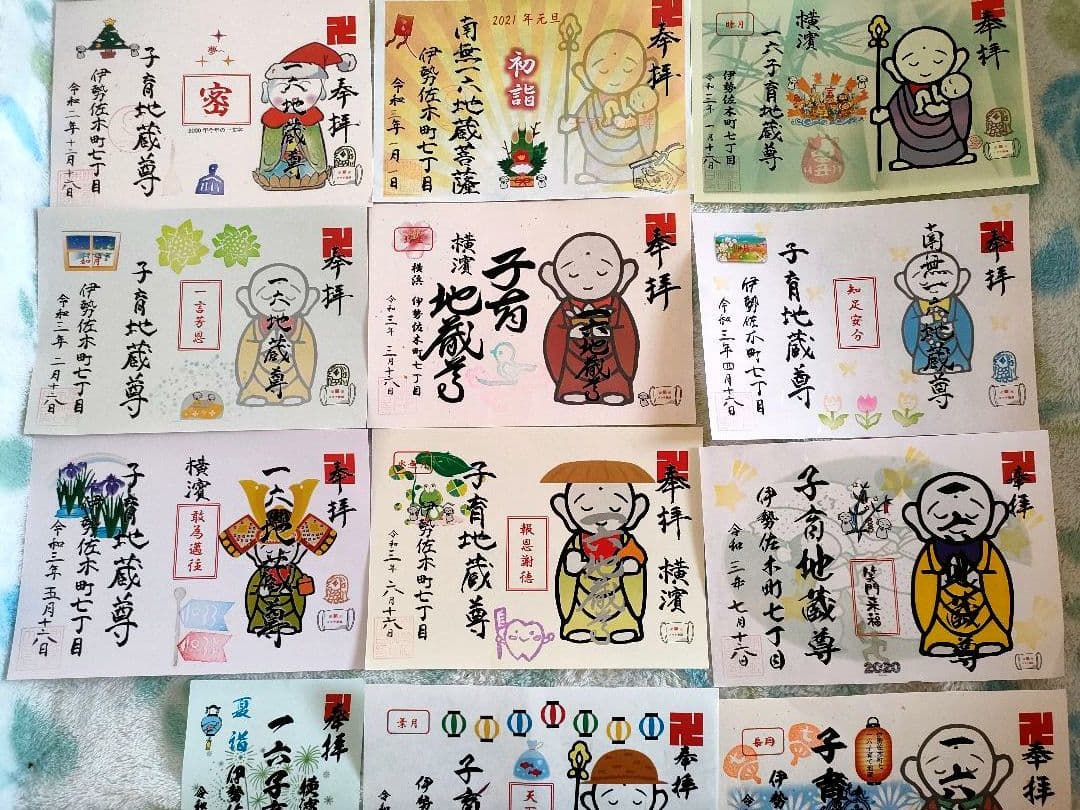 奉拝
一六地蔵尊
夢
密
2020年今年の一文字
子育地蔵尊
伊勢佐木町七丁目
令和二年十二月十六日
奉拝
2021年元旦
初詣
南無一六地蔵菩薩
伊勢佐木町七丁目
令和三年一月一日
奉拝
睦月
横濱
一六子育地蔵尊
伊勢佐木町七丁目
令和三年一月十六日
奉拝
一六地蔵尊
一言芳恩
如月
子育地蔵尊
伊勢佐木町七丁目
令和三年二月十六日
奉拝
一六地蔵尊
子育
地蔵尊
横濱
横浜 伊勢佐木町七丁目
令和三年三月十六日
奉拝
南無一六地蔵尊
知足安分
子育地蔵尊
伊勢佐木町七丁目
令和三年四月十六日
奉拝
一六地蔵尊
横濱
敢為邁往
子育地蔵尊
伊勢佐木町七丁目
令和三年五月十六日
奉拝
横濱
一六地蔵尊
報恩謝徳
子育地蔵尊
伊勢佐木町七丁目
令和三年六月十六日
奉拝
一六地蔵尊
笑門来福
2020
子育地蔵尊
伊勢佐木町七丁目
令和三年七月十六日
奉拝
横濱
一六子
夏詣
伊勢
奉拝
葉月
天
伊勢
奉拝
一六
長月
子育
伊勢